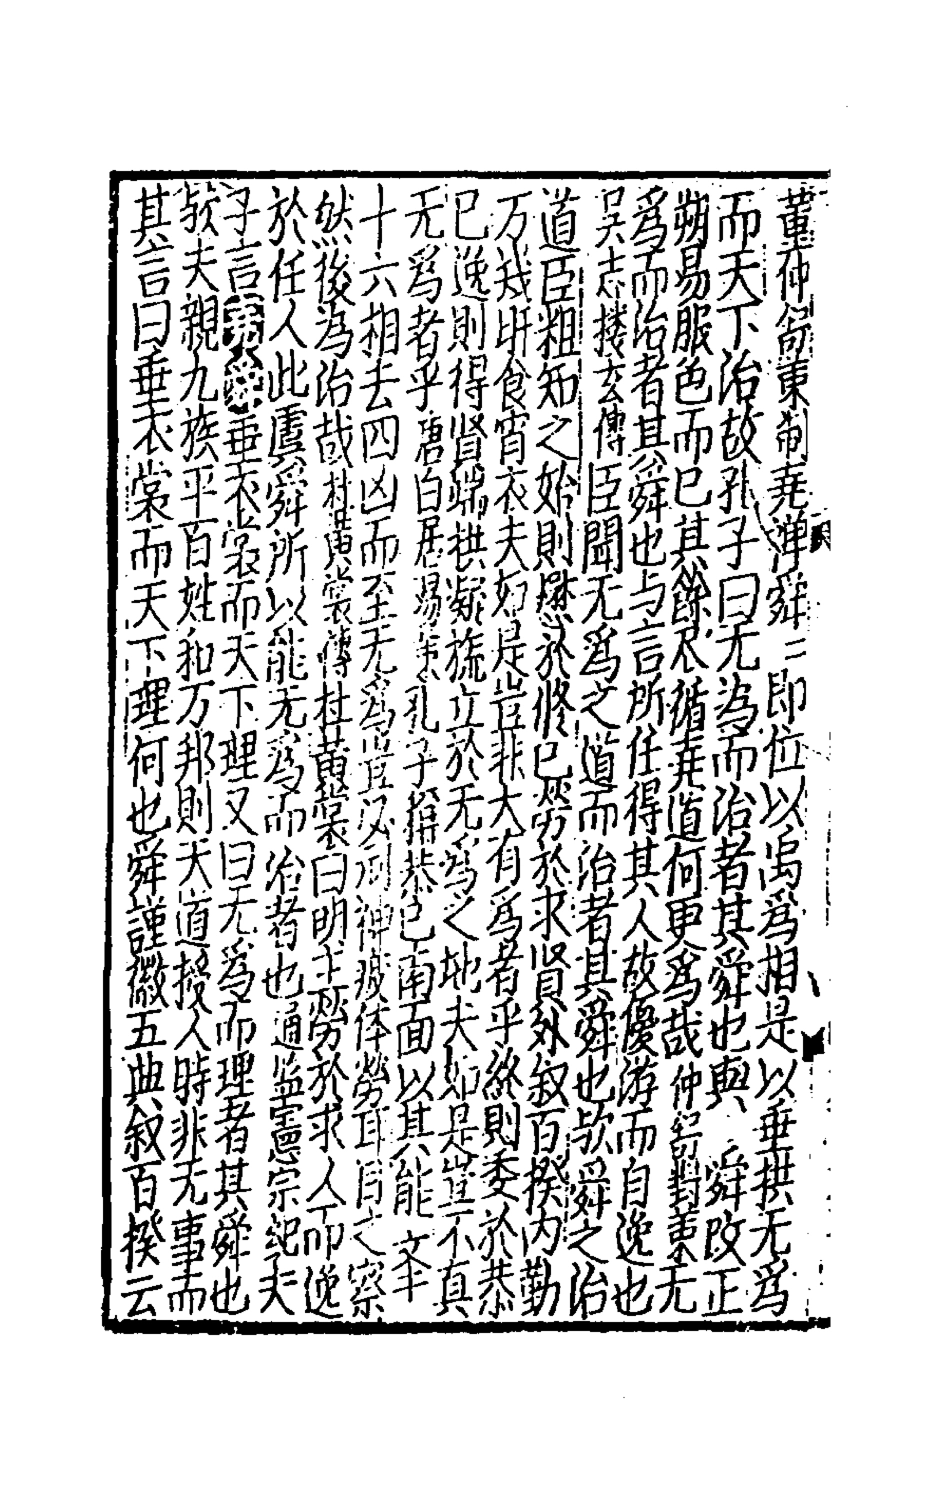 董仲舒策制堯禪舜二即位以禹爲相是以垂拱无爲
而天下治故孔子曰无為而治者其舜也與 舜改正
朔易服色而已其餘尽循堯道何更爲哉仲舒對策无
爲而治者其舜也与言所任得其人故優游而自逸也
吴志搂玄傳臣聞无爲之道而治者其舜也欤舜之治
道臣粗知之始則懋於修已於勞於求賢外叙百揆内勤
万㦲旰食宵衣夫如是豈非大有爲者乎終則委於恭
已逸則得賢端拱凝旒立於无爲之地夫如是豈不真
无爲者乎唐白居易策孔子稱恭已南面以其能 文
十六相去四凶而至无爲豈必刳神疲体勞耳目之察
然後為治哉杜黄裳傳杜黄裳曰明主勞於求人而逸
於任人此虞舜所以能无爲而治者也通监憲宗紀夫
子言垂衣裳而天下理又曰无爲而理者其舜也
欤夫親九族平百姓和万邦則天道授人時非无事而
其言曰垂衣裳而天下理何也舜謹徽五典叙百揆云